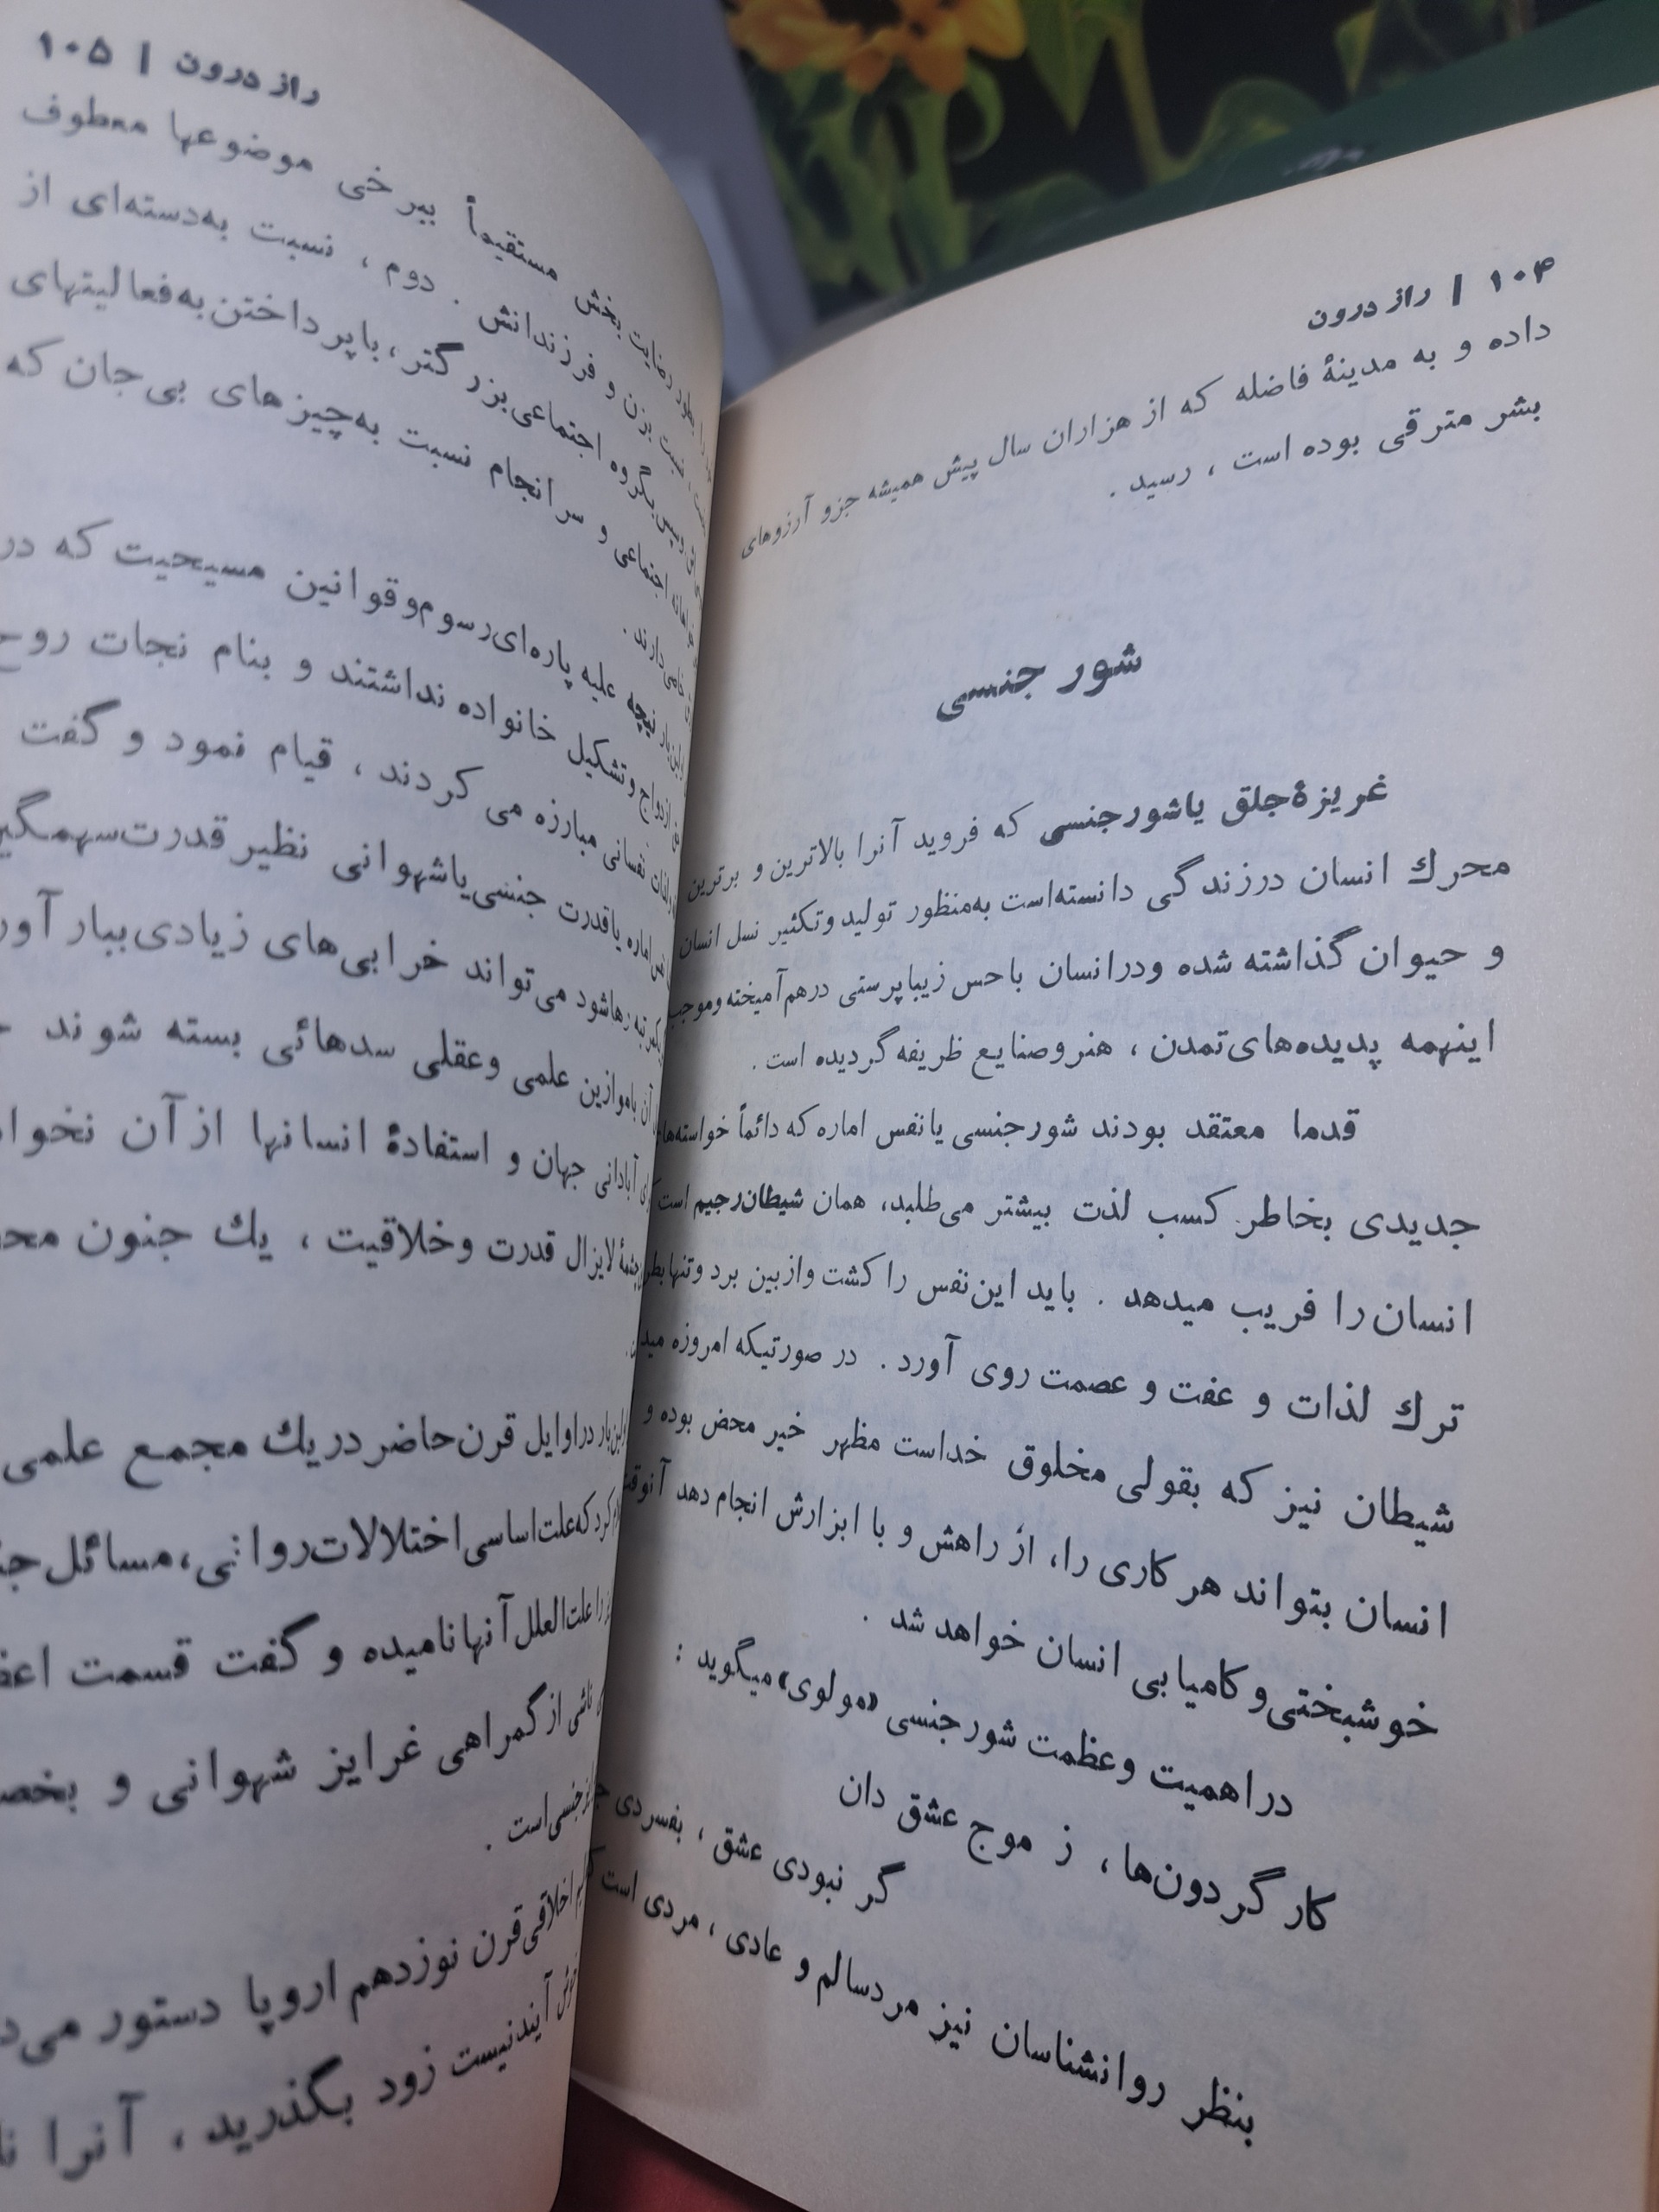 ۱۰۴ / راز درون
داده و به مدینهٔ فاضله که از هزاران سال پیش همیشه جزو آرزوهای
بشر مترقی بوده است ، رسید .
شور جنسی
غریزهٔ جلق یا شور جنسی که فروید آنرا بالاترین و برترین
محرك انسان در زندگی دانسته‌است به‌منظور تولید و تکثیر نسل انسان
و حیوان گذاشته شده و در انسان با حس زیباپرستی درهم آمیخته و موجب
اینهمه پدیده‌های تمدن ، هنر و صنایع ظریفه گردیده است .
قدما معتقد بودند شور جنسی یا نفس اماره که دائماً خواسته‌های
جدیدی بخاطر کسب لذت بیشتر می‌طلبد، همان شیطان رجیم است که
انسان را فریب میدهد . باید این نفس را کشت و از بین برد و تنها
ترك لذات و عفت و عصمت روی آورد . در صورتیکه امروزه
شیطان نیز که بقولی مخلوق خداست مظهر خیر محض بوده و
انسان بتواند هر کاری را، از راهش و با ابزارش انجام دهد
خوشبختی و کامیابی انسان خواهد شد .
در اهمیت و عظمت شور جنسی «مولوی» میگوید :
کار گردون‌ها ، ز موج عشق دان
گر نبودی عشق ، بفسردی
بنظر روانشناسان نیز مرد سالم و عادی ، مردی است
راز درون / ۱۰۵
بطور رضایت بخش مستقیماً ببرخی موضوعها معطوف
نسبت بزن و فرزندانش . دوم ، نسبت به‌دسته‌ای از
و سپس بگروه اجتماعی بزرگتر ، با پرداختن به فعالیتهای
اجتماعی و سرانجام نسبت به‌چیزهای بی‌جان که
می‌دارند .
نیچه علیه پاره‌ای رسوم و قوانین مسیحیت که در
ازدواج و تشکیل خانواده نداشتند و بنام نجات روح
نفسانی مبارزه می کردند ، قیام نمود و گفت
اماره یا قدرت جنسی یا شهوانی نظیر قدرت
رها شود می‌تواند خرابی‌های زیادی ببار
آن با موازین علمی و عقلی سدهائی بسته شوند
آبادانی جهان و استفادهٔ انسانها از آن
لایزال قدرت و خلاقیت ، یك جنون
در اوایل قرن حاضر در یك مجمع علمی
که علت اساسی اختلالات روانی، مسائل
را علت‌العلل آنها نامیده و گفت قسمت
ناشی از گمراهی غرایز شهوانی و
جنسی است .
اخلاقی قرن نوزدهم اروپا دستور
آیند نیست زود بگذرید ، آنرا